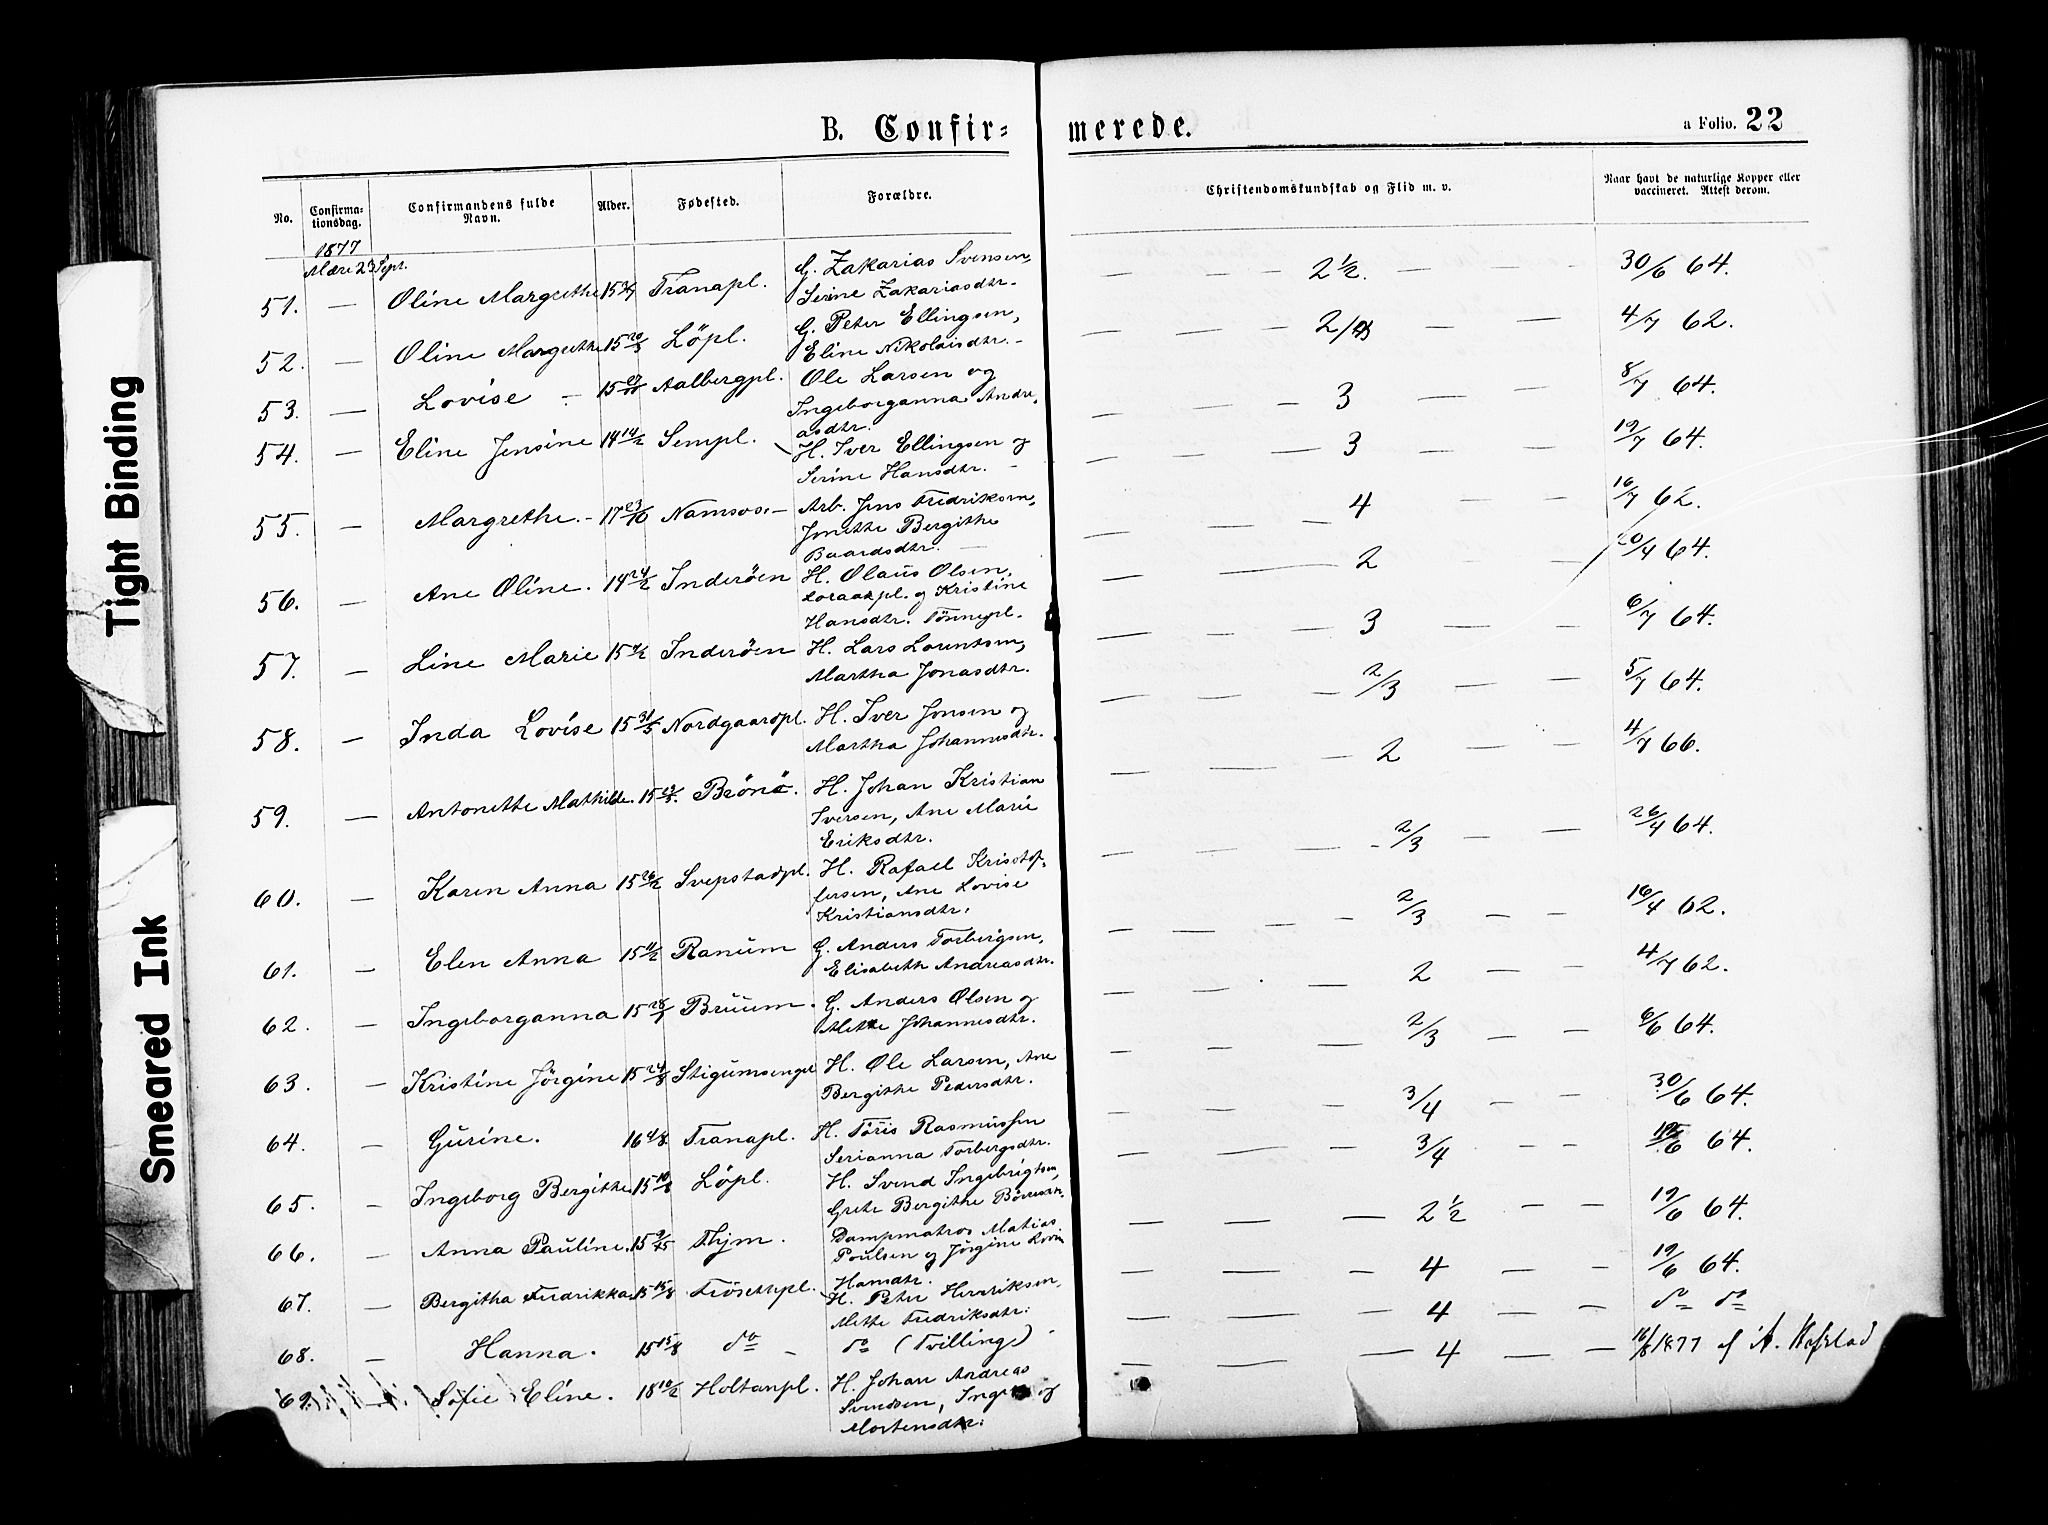 Tight Binding
Smeared Ink
B. Confir-
merede.
a Folio. 22
No.
Confirma-
tionsdag.
Confirmandens fulde
Navn.
Alder.
Fødested.
Forældre.
Christendomskundskab og Flid m. v.
Naar havt de naturlige Kopper eller
vaccineret. Attest derom.
1877
Mære 23 Sept.
51. — Oline Margrethe Tranapl. G. Zakarias Svensen, — — — 2 1/2. — — 30/6 64.
Serine Zakariasdtr. —
52. — Oline Margrethe Löpl. G. Peter Ellingsen, — — — — — 4/7 62.
Eline Nikolaisdtr. —
53. — Lovise — Aalbergpl. Ole Larsen og — — — 3 — — 8/7 64.
Ingeborganna Andre-
asdtr.
54. — Eline Jensine 14 14/2 Sempl. H. Iver Ellingsen og — — — 3 — — 19/7 64.
Serine Hansdtr. —
55. — Margrethe. — 17 23/10 Namsos. — Arb. Jens Fredriksen, — — — 4 — — 16/7 62.
Jmitte Bergithe
Baardsdtr. —
56. — Ane Oline. 14 24/2 Inderöen H. Olaus Olsen, — — — 2 — — 20/4 64.
og Kristine
Hansdtr. Tönnepl.
57. — Line Marie Inderöen H. Lars Lorentsen, — — — 3 — — 6/7 64.
Martha Jonasdtr.
58. — Inda Lovise 15 31/5 Nordgaardpl. H. Iver Jonsen og — — — 2/3 — — 5/7 64.
Martha Johannesdtr.
59. — Antonette Mathilde. Brönö. H. Johan Kristian — — — 2 — — 4/7 66.
Iversen, Ane Marie
Eriksdtr.
60. — Karen Anna 15 26/2 Svepstadpl. H. Rafael Kristof- — — — 2/3 — — 26/4 64.
fersen, Ane Lovise
Kristiansdtr.
61. — Elen Anna Ranum G. Anders Torbergsen, — — — 2/3 — — 16/4 62.
Elisabeth Andreasdtr.
62. — Ingeborganna 15 28/7 Bruum. G. Anders Olsen og — — — 2 — — 4/7 62.
Mette Johannesdtr.
63. — Kristine Jörgine 15 24/8 Stigumsengpl H. Ole Larsen, Ane — — — 2/3 — — 6/6 64.
Bergithe Pedersdtr.
64. — Gurine. Tranapl. H. Töris Rasmussen — — — 3/4 — — 30/6 64.
Serianna Torbergsdtr.
65. — Ingeborg Bergithe 15 10/8 Löpl. H. Svend Ingebrigtsen, — — — 3/4 — — 64.
Grete Bergithe
66. — Anna Pauline. Thjm. Dampmatros Matias — — — 2 1/2 — — 19/6 64.
Poulsen og Jörgine
Hansdtr.
67. — Bergitha Fredrikka 15 15/8 Frösetpl. H. Peter Henriksen, — — — 4 — — 19/6 64.
Mette Fredriksdtr.
68. — Hanna. 15 15/8 do — do (Tvilling) — — — 4 — — do do
69. — Sofie Eline. 18 10/2 Holtanpl. H. Johan Andreas — — — 4 — — 16/8 1877 af A. Hofstad
Svendsen, og
Mortensdtr.